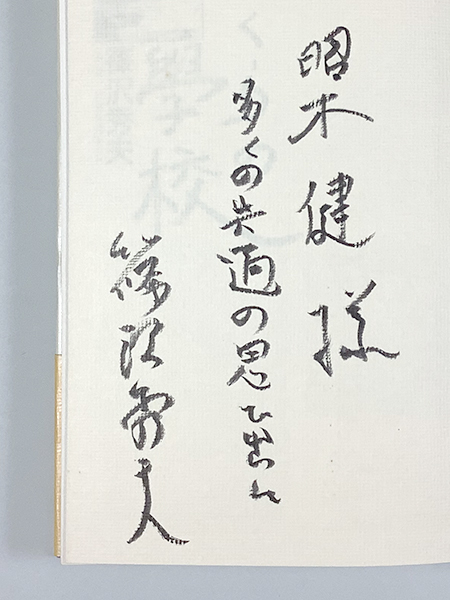 木 健 様
多くの共通の思ひ出に
篠沢秀夫